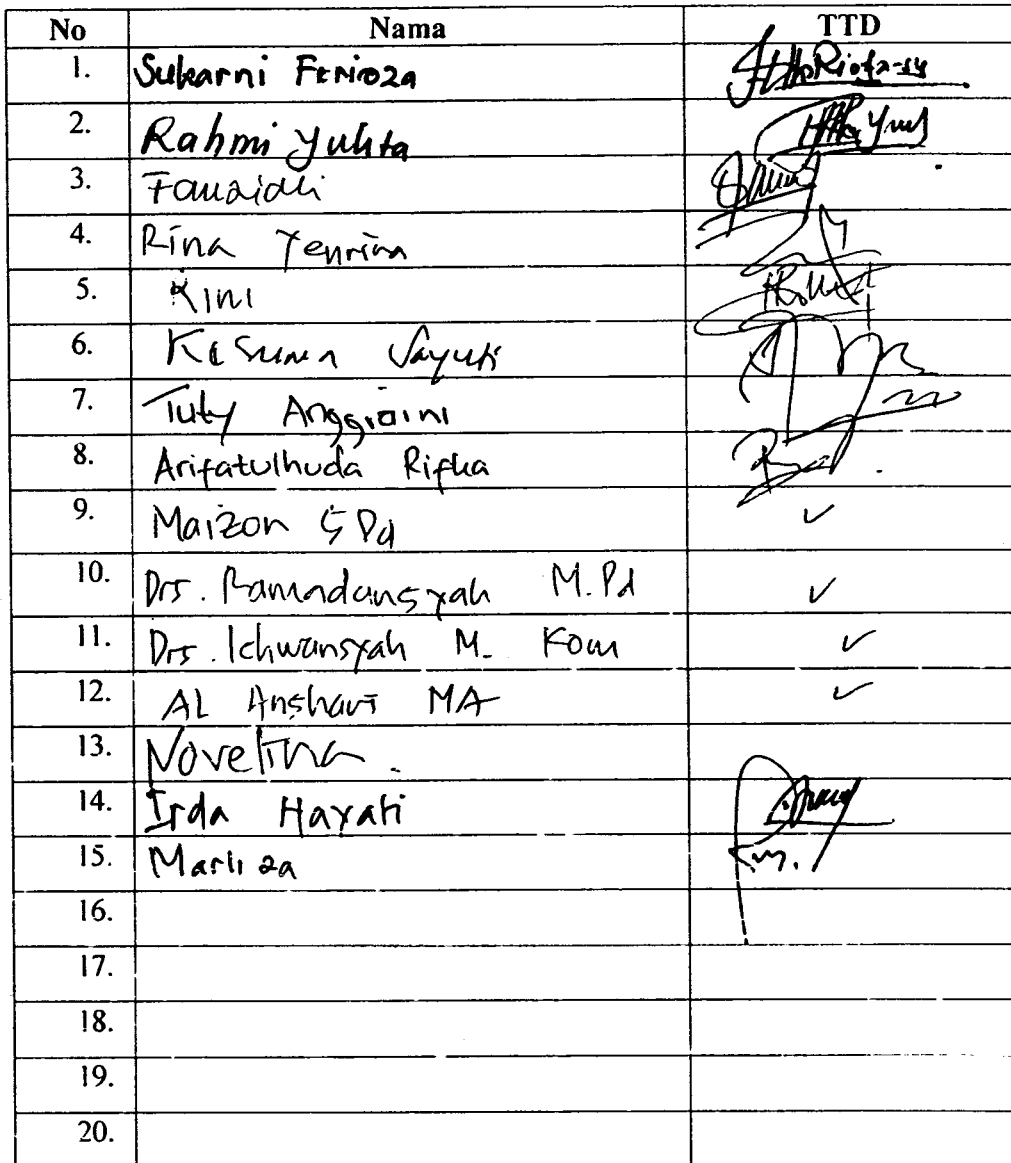 No Nama TTD
1. Sukarni Ferioza
2. Rahmi Yulita
3. Fauzidli
4. Rina Yenrina
5. Rini
6. Kesuma Sayuti
7. Tuty Anggraini
8. Arifatulhuda Rifka
9. Maizon S Pd ✓
10. Drs. Ramadansyah M.Pd ✓
11. Drs. Ichwansyah M. Kom ✓
12. AL Anshari MA ✓
13. Novelina.
14. Irda Hayati
15. Marliza
16.
17.
18.
19.
20.